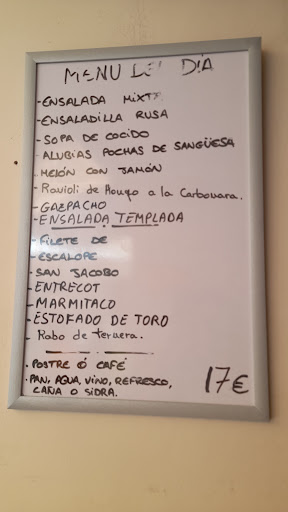 MENU DEL DÍA
- ENSALADA MIXTA
- ENSALADILLA RUSA
- SOPA DE COCIDO
- ALUBIAS POCHAS DE SANGÜESA
- MELÓN CON JAMÓN
- Ravioli de Hongo a la Carbonara.
- GAZPACHO
- ENSALADA TEMPLADA
- FILETE DE
- ESCALOPE
- SAN JACOBO
- ENTRECOT
- MARMITACO
- ESTOFADO DE TORO
- Rabo de ternera.
. POSTRE Ó CAFÉ
. PAN, AGUA, VINO, REFRESCO,
CAÑA O SIDRA.
17€